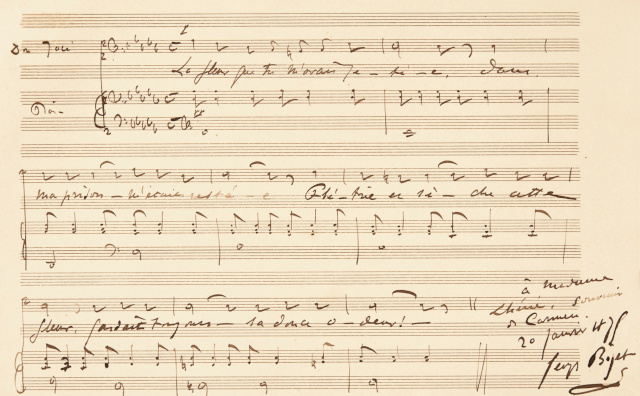 Don José
La fleur que tu m'avais je-té-e, dans
ma prison - m'était restée - e Flé-trie et sè-che cette
fleur, gardait toujours - sa douce o-deur! -
à Madame
souvenir
de Carmen.
20 janvier 1875
Georges Bizet